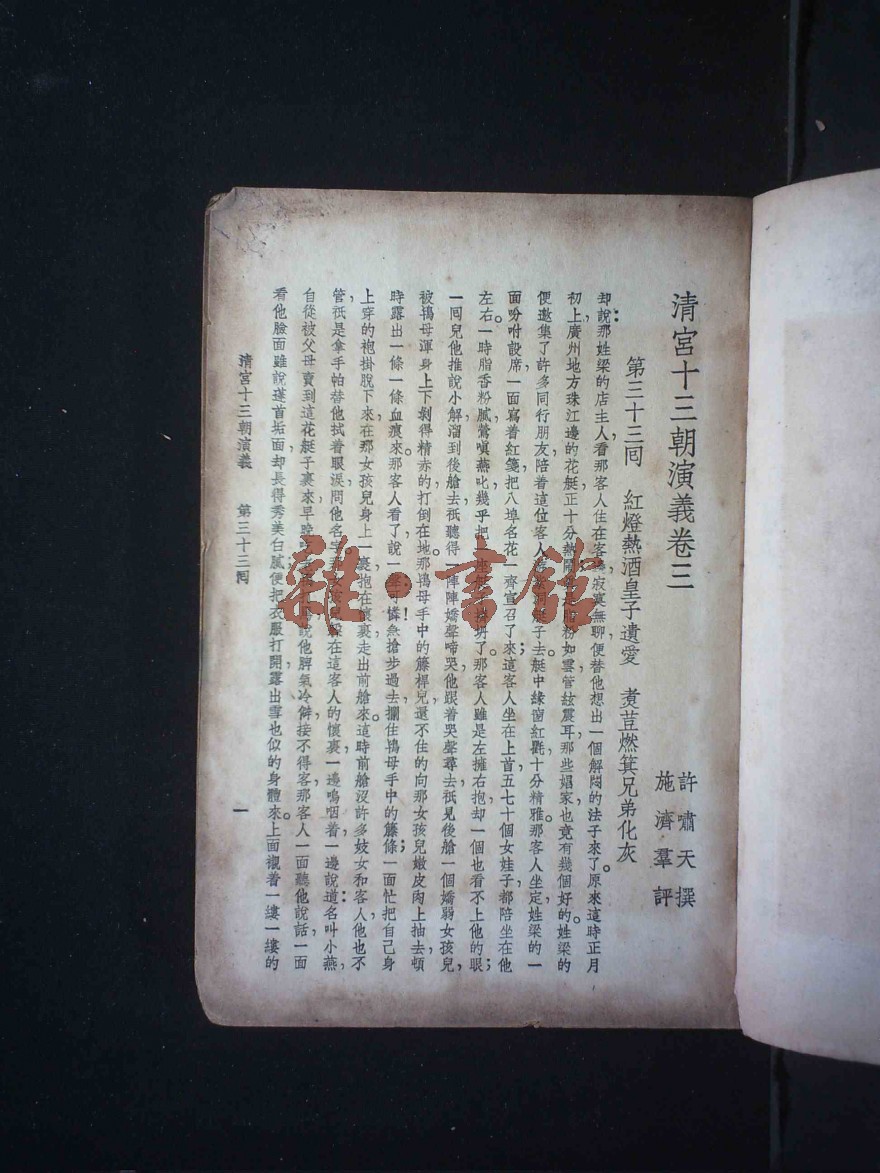 清宮十三朝演義卷三
許嘯天撰
施濟羣評
第三十三囘 紅燈熱酒皇子遺愛 煮荳燃箕兄弟化灰
却說:那姓梁的店主人看那客人住在客寂寞無聊,便替他想出一個解悶的法子來了。原來這時正月
初上,廣州地方珠江邊的花艇正十分熱粉如雲,管絃震耳,那些娼家也竟有幾個好的。姓梁的
便邀集了許多同行朋友陪着這位客人艇子去。艇中綠窗紅氈,十分精雅。那客人坐定,姓梁的一
面吩咐設席,一面寫着紅箋,把八埠名花一齊宣召了來;這客人坐在上首,五七十個女娃子都陪坐在他
左右。一時脂香粉膩,鶯嗔燕叱,幾乎把一座艇了。那客人雖是左擁右抱,却一個也看不上他的眼;
一囘兒他推說小解,溜到後艙去,祇聽得一陣陣嬌聲啼哭。他跟着哭聲尋去,祇見後艙一個嬌弱女孩兒,
被鴇母渾身上下剝得精赤的,打倒在地。那鴇母手中的籐桿兒還不住的向那女孩兒嫩皮肉上抽去,頓
時露出一條一條血痕來。那客人看了,說一聲:可憐!急搶步過去攔住鴇母手中的籐條;一面忙把自己身
上穿的袍掛脫下來,在那女孩兒身上一裹,抱在懷裏,走出前艙來。這時前艙沒許多妓女和客人,他也不
管,祇是拿手帕替他拭着眼淚,問他名字。那女孩兒躱在這客人的懷裏,一邊嗚咽着,一邊說道:名叫小燕,
自從被父母賣到這花艇子裏來,早晚說他脾氣冷僻,接不得客。那客人一面聽他說話,一面
看他臉面,雖說蓬首垢面,却長得秀美白膩;便把衣服打開,露出雪也似的身體來。上面襯着一縷一縷的
清宮十三朝演義 第三十三囘 一
雜·書館